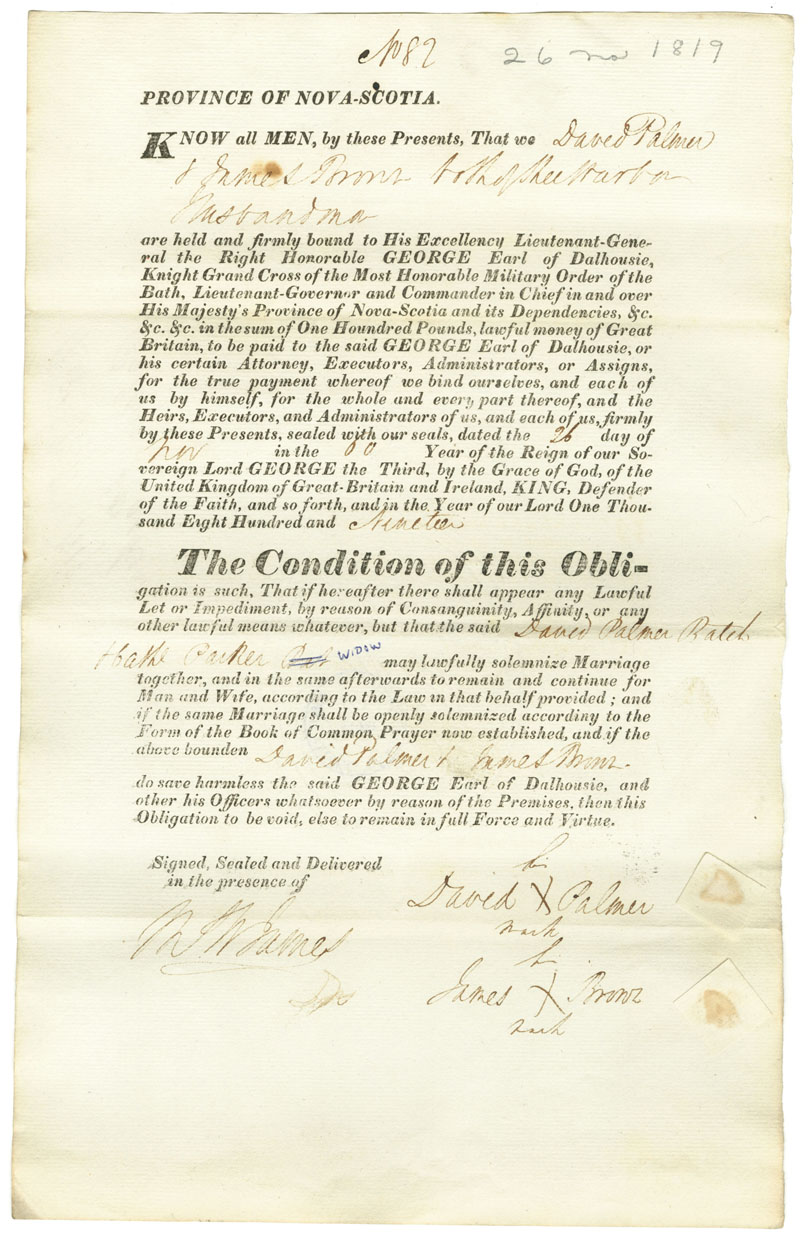 No 82 26 no 1819
PROVINCE OF NOVA-SCOTIA.
KNOW all MEN, by these Presents, That we David Palmer
& James Brown both of
Husbandman
are held and firmly bound to His Excellency Lieutenant-Gene-
ral the Right Honorable GEORGE Earl of Dalhousie,
Knight Grand Cross of the Most Honorable Military Order of the
Bath, Lieutenant-Governor and Commander in Chief in and over
His Majesty's Province of Nova-Scotia and its Dependencies, &c.
&c. &c. in the sum of One Houndred Pounds, lawful money of Great
Britain, to be paid to the said GEORGE Earl of Dalhousie, or
his certain Attorney, Executors, Administrators, or Assigns,
for the true payment whereof we bind ourselves, and each of
us by himself, for the whole and every part thereof, and the
Heirs, Executors, and Administrators of us, and each of us, firmly
by these Presents, sealed with our seals, dated the 26 day of
Nov in the 60 Year of the Reign of our So-
vereign Lord GEORGE the Third, by the Grace of God, of the
United Kingdom of Great-Britain and Ireland, KING, Defender
of the Faith, and so forth, and in the Year of our Lord One Thou-
sand Eight Hundred and Nineteen
The Condition of this Obli-
gation is such, That if hereafter there shall appear any Lawful
Let or Impediment, by reason of Consanguinity, Affinity, or any
other lawful means whatever, but that the said David Palmer Batch
Parker WIDOW may lawfully solemnize Marriage
together, and in the same afterwards to remain and continue for
Man and Wife, according to the Law in that behalf provided; and
if the same Marriage shall be openly solemnized accordiny to the
Form of the Book of Common Prayer now established, and if the
above bounden David Palmer & James Brown
do save harmless the said GEORGE Earl of Dalhousie, and
other his Officers whatsoever by reason of the Premises, then this
Obligation to be void, else to remain in full Force and Virtue.
Signed, Sealed and Delivered
in the presence of
James
his
David X Palmer
mark
his
James X Brown
mark